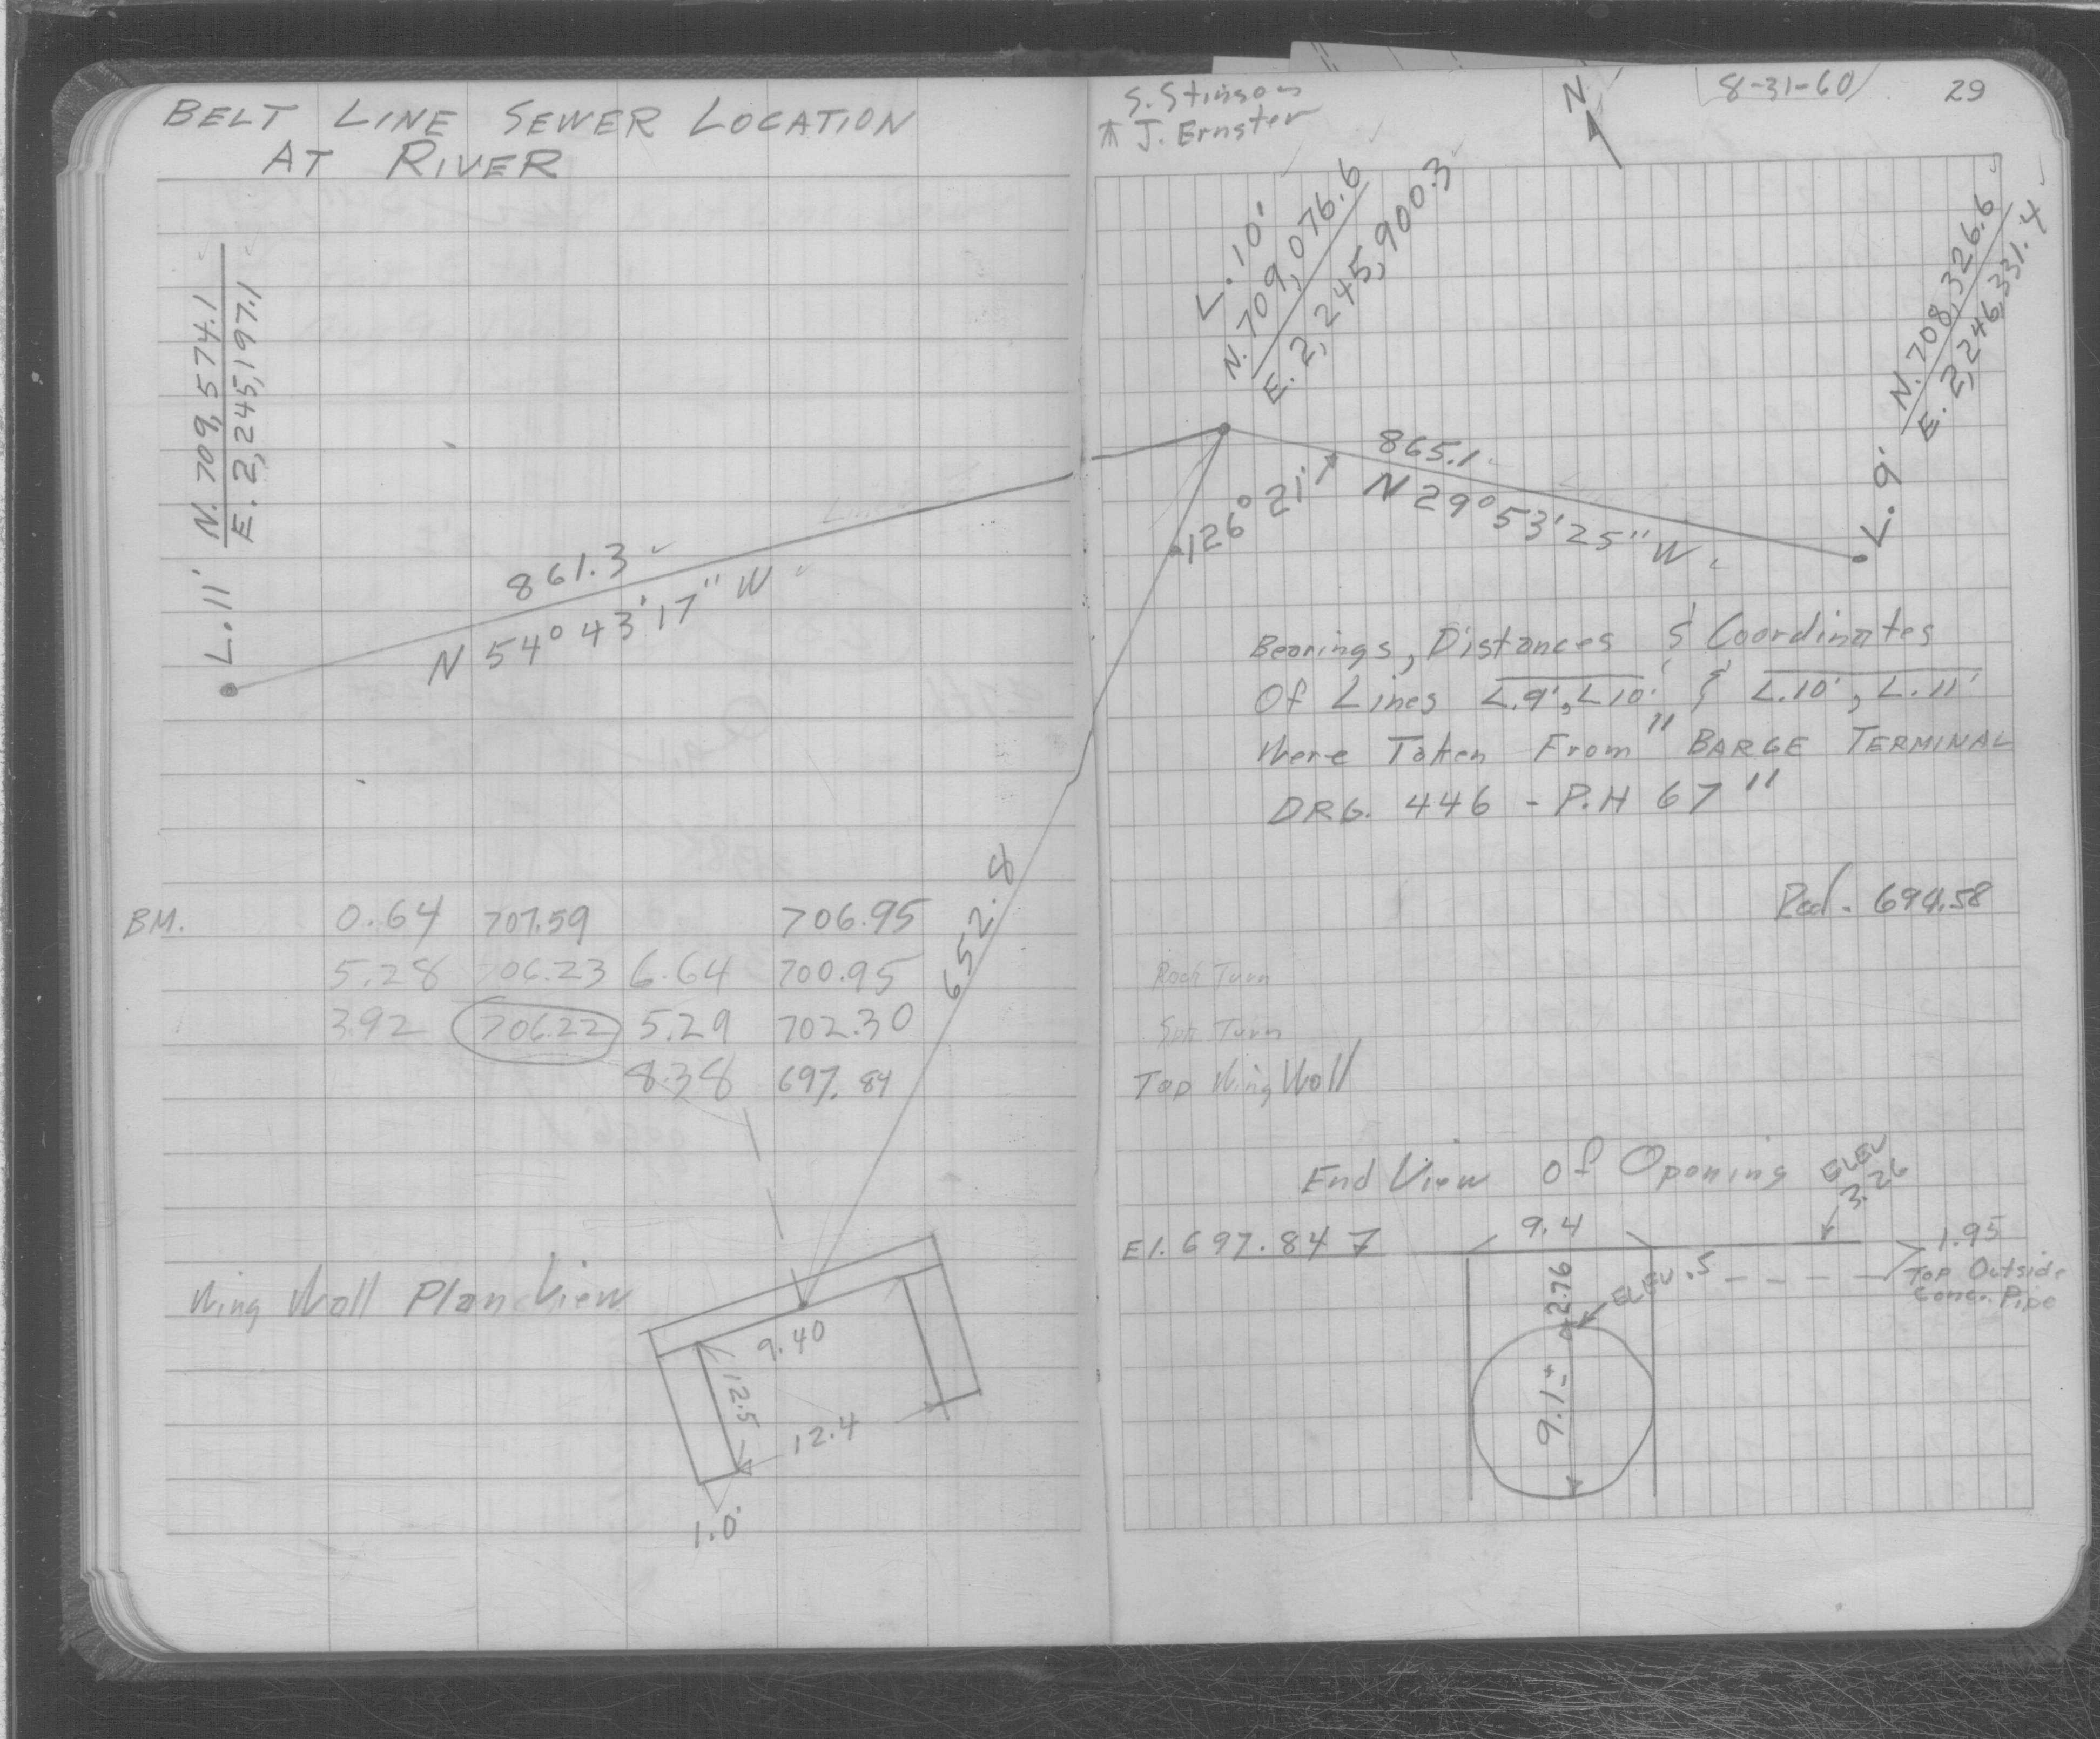 BELT LINE SEWER LOCATION
AT RIVER
L.11' N. 709,574.1
E. 2,245,197.1
861.3
N 54° 43' 17" W
BM. 0.64 707.59 706.95
5.28 706.23 6.64 700.95
3.92 706.22 5.29 702.30
8.38 697.84
652.8
Wing Wall Plan View
9.40
12.5
12.4
1.0'
S. Stinson
J. Ernster
N
8-31-60
29
L.10'
N. 709,076.6
E. 2,245,900.3
L.9' N. 708,326.6
E. 2,246,331.4
865.1
N 29° 53' 25" W
126° 21'
Bearings, Distances & Coordinates
Of Lines L.9', L10' & L.10', L.11'
Were Taken From "BARGE TERMINAL
DRG. 446 - P.H 67"
694.58
Rock Turn
Turn
Top Wing Wall
End View Of Opening
ELEV
3.26
El. 697.84
9.4
1.95
Top Outside
Conc. Pipe
2.76
ELEV .5
9.1±